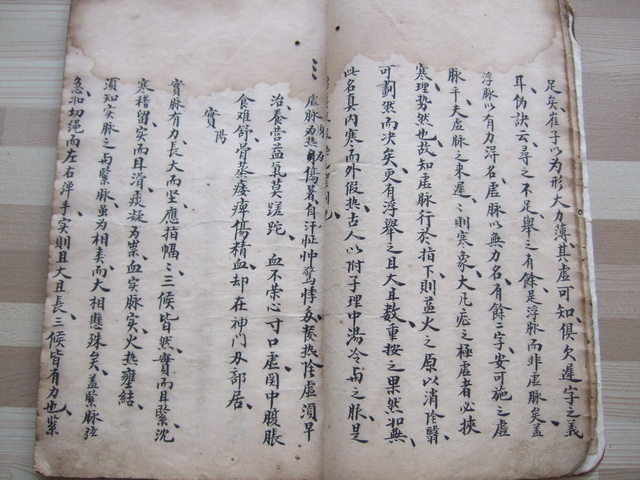 足矣崔子以为形大力薄其虚可知俱欠遲字之義
耳伪訣云尋之不足舉之有餘是浮脉而非虚脉矣盖
浮脉以有力淂名虚脉以無力名有餘二字安可施之虚
脉乎夫虚脉之来遲〻則寒象大凡症之極虚者必挾
寒理势然也故知虚脉行於指下則益火之原以消陰翳
可劃然而决矣更有浮舉之且大且数重按之果然如無
此名真内寒而外假热古人以附子理中湯冷与之服是
虚脉为热傷暑自汗怔忡驚悸發热陰虚須早
治養营益氣莫蹉跎 血不荣心寸口虚関中腹脹
食难舒骨蒸痿痺傷精血却在神門两部居
實 陽
實脉有力長大而坚應指愊〻三候皆然實而且緊沈
寒稽留实而且滑痰凝为祟血实脉实火热壅結
須知实脉之与緊脉虽为相类而大相懸殊矣盖緊脉弦
急如切绳而左右弹手实則且大且長三候皆有力也紧